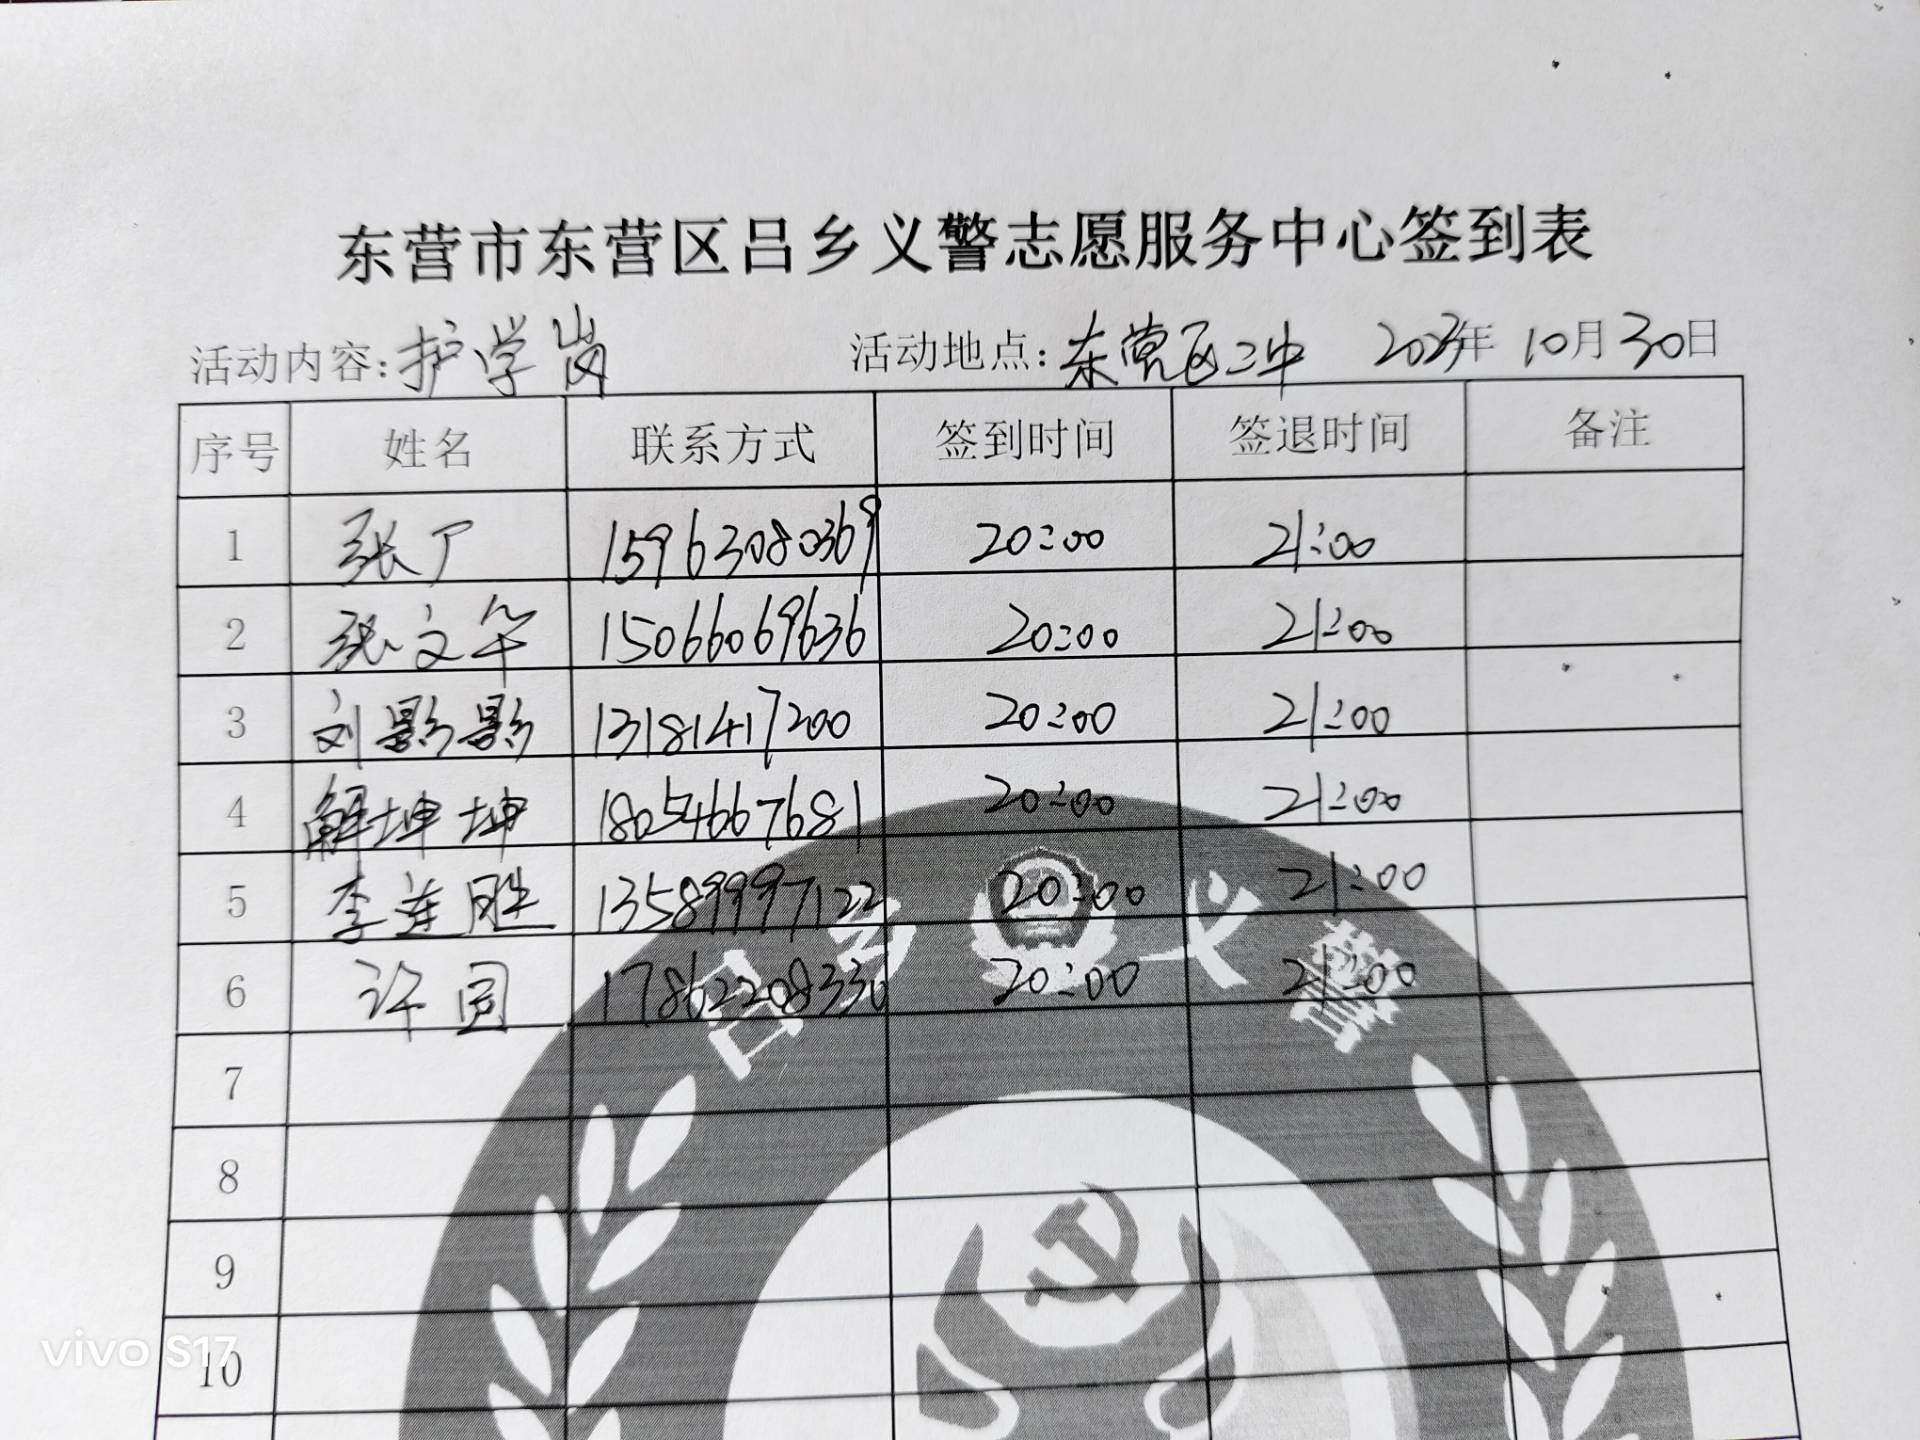 东营市东营区吕乡义警志愿服务中心签到表
活动内容:护学岗 活动地点:东营区二中 2023年 10月30日
序号 姓名 联系方式 签到时间 签退时间 备注
1 张广 15963080369 20:00 21:00
2 张文华 15066069636 20:00 21:00
3 刘影影 13181417200 20:00 21:00
4 解坤坤 18054667681 20:00 21:00
5 李连胜 13589997122 20:00 21:00
6 许圆 17862208336 20:00 21:00
7
8
9
10
吕乡义警
vivo S17